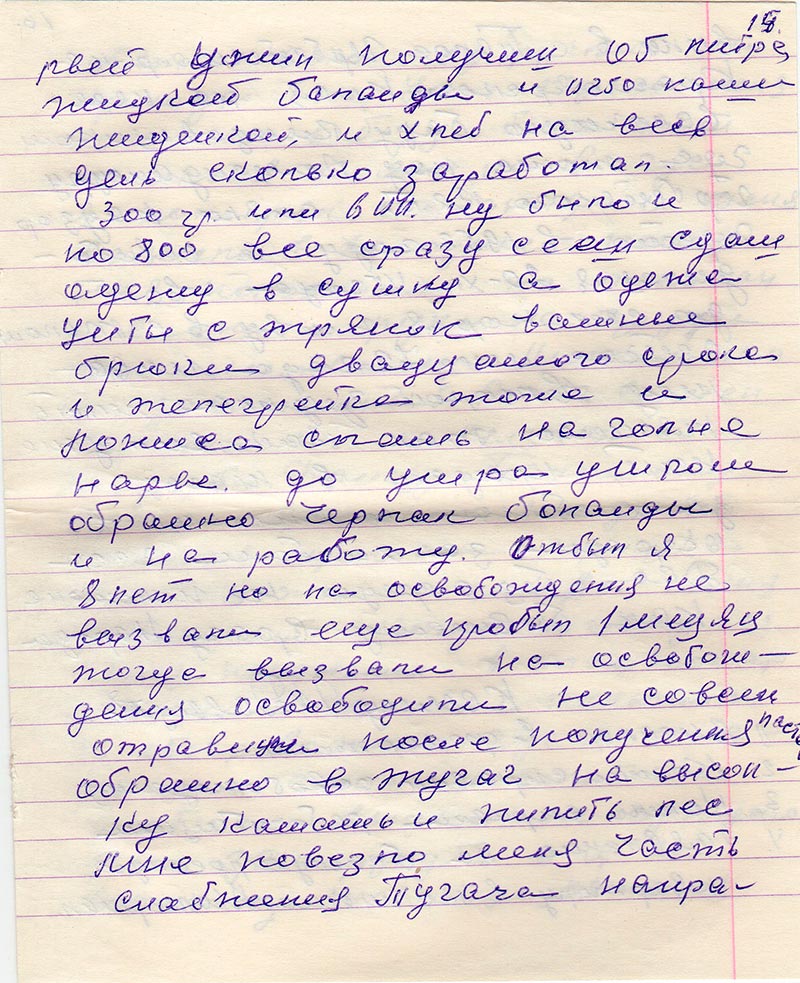 18.
рвей ужин получили 0б литре
жидкой баланды и 0250 каши
жиденкой, и хлеб на весь
день сколько заработал.
300 гр. или вып. ну было и
по 800 все сразу сели сдали
одежу в сушку а одежа
шиты с тряпок ватные
брюки двадцатого срока
и желегрейка тоже и
ложися спать на голые
нары. до утра утром
обратно черпак боланды
и на работу. Отбыл я
8 лет но на освобождения не
вызвали еще пробыл 1 месяц
тогда вызвали на освобож-
дения освободили не совсем
отравили после получения паспо
обратно в тугач на высол-
ку катать и пилить лес
мне повезло меня часть
слабжения Тугача напра-